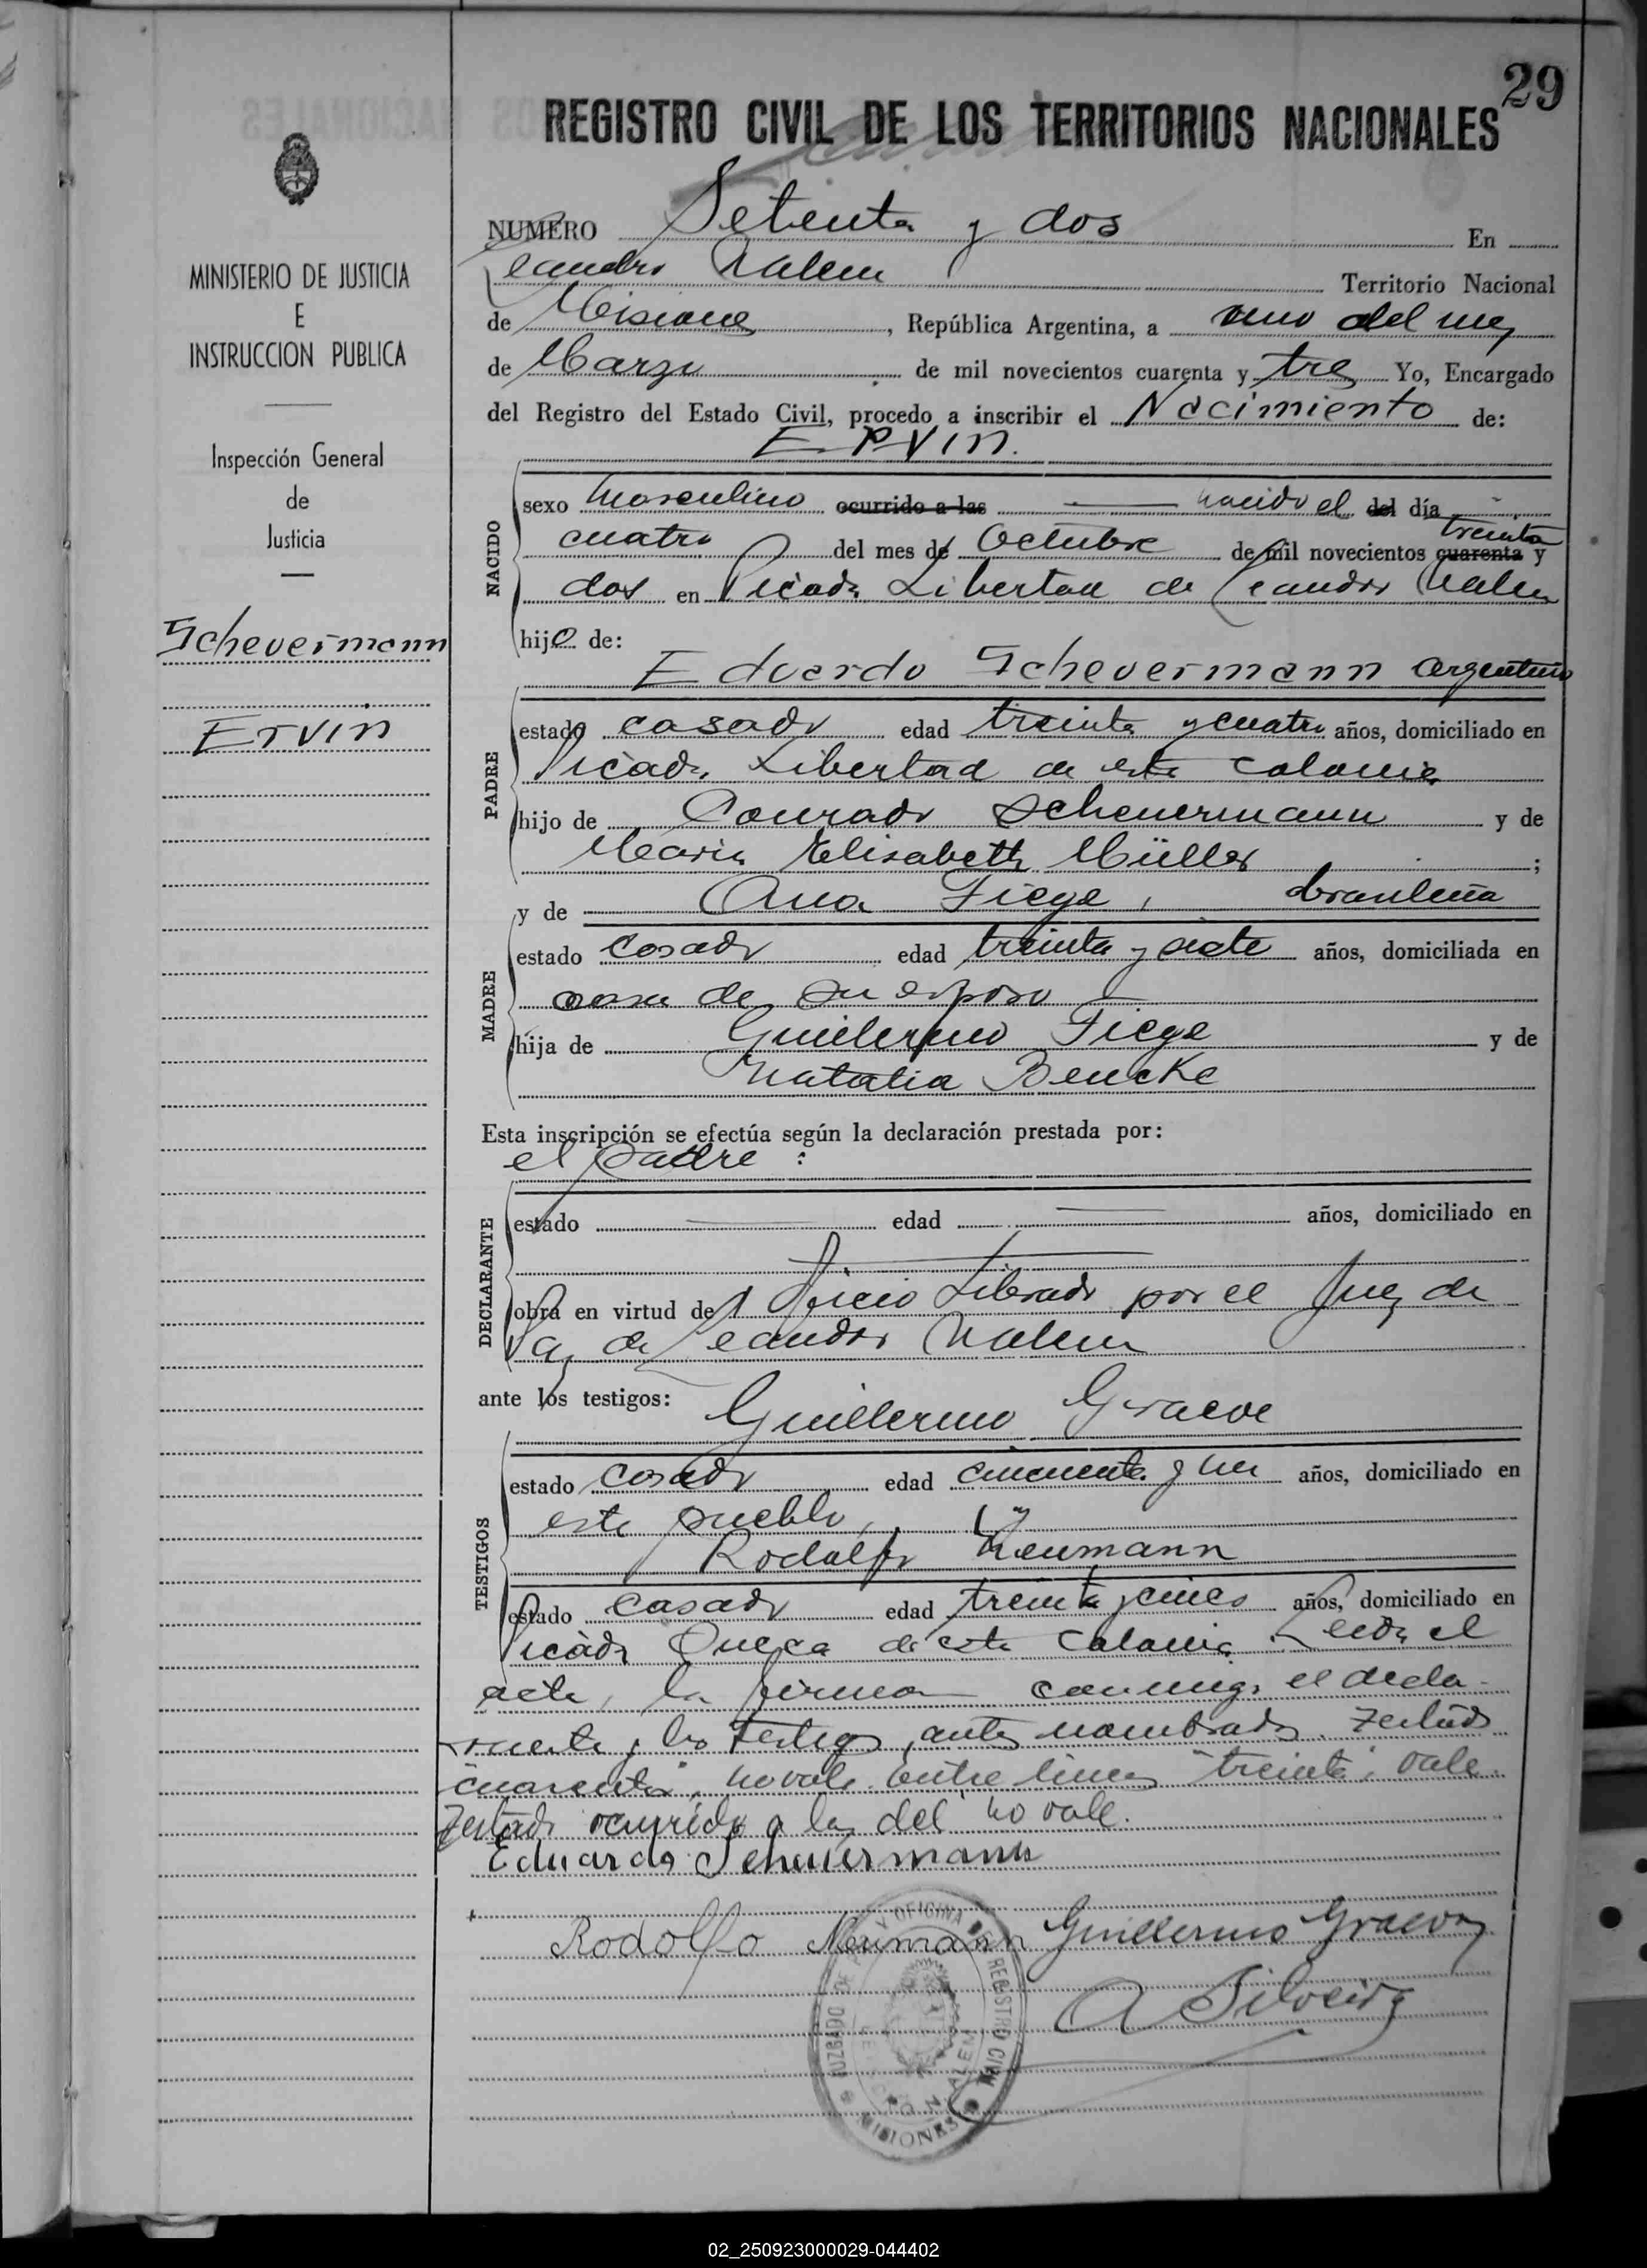 29
REGISTRO CIVIL DE LOS TERRITORIOS NACIONALES
MINISTERIO DE JUSTICIA
E
INSTRUCCION PUBLICA
Inspección General
de
Justicia
Schevermann
Ervin
NUMERO Setenta y dos En
Leandro N Alem Territorio Nacional
de Misiones, República Argentina, a uno del mes
de Marzo de mil novecientos cuarenta y tres Yo, Encargado
del Registro del Estado Civil, procedo a inscribir el Nacimiento de:
ERVIN.
NACIDO
sexo masculino ocurrido a las nacido el del día
treinta
cuatro del mes de Octubre de mil novecientos cuarenta y
dos en Picada Libertad de Leandro N Alem
hijo de:
Eduardo Schevermann argentino
PADRE
estado casado edad treinta y cuatro años, domiciliado en
Picada Libertad de esta colonia
hijo de Conrado Scheuermann y de
Maria Elisabeth Müller ;
y de Ana Fiege, brasileña
MADRE
estado casada edad treinta y siete años, domiciliada en
casa de su esposo
hija de Guillermo Fiege y de
Natalia Bencke
Esta inscripción se efectúa según la declaración prestada por:
el padre :
DECLARANTE
estado edad años, domiciliado en
obra en virtud del Oficio Librado por el Juez de
Paz de Leandro N Alem
ante los testigos: Guillermo Graeve
TESTIGOS
estado casado edad cincuenta y un años, domiciliado en
este pueblo, y
Rodolfo Neumann
estado casado edad treinta y cinco años, domiciliado en
Picada de esta Colonia. Leida el
acta, la firman conmigo el decla-
rante y los testigos antes nombrados. Testado
"cuarenta", no vale. entre lineas "treinta". vale.
Testado ocurrido a las del no vale.
Eduardo Scheuermann
Rodolfo Neumann Guillermo Graeve
A Silveira
JUZGADO DE PAZ Y OFICINA REGISTRO CIVIL
LEANDRO N. ALEM
MISIONES
02_250923000029-044402